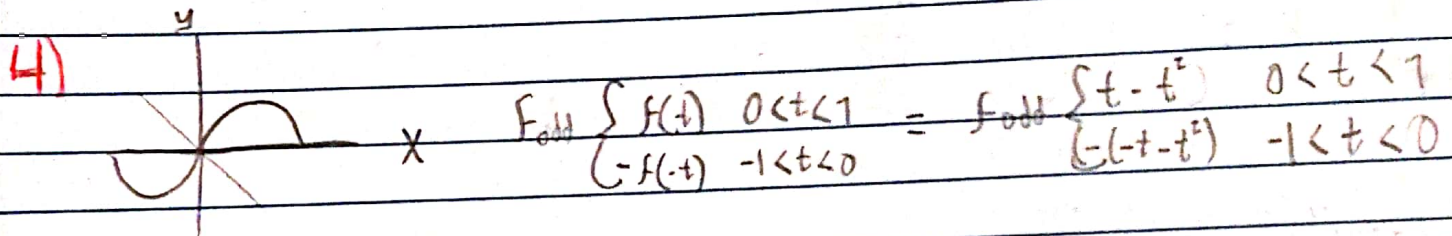 y
4)
x
F_odd { f(t) 0<t<1
-f(-t) -1<t<0
= f_odd { t-t² 0<t<1
-(-t-t²) -1<t<0